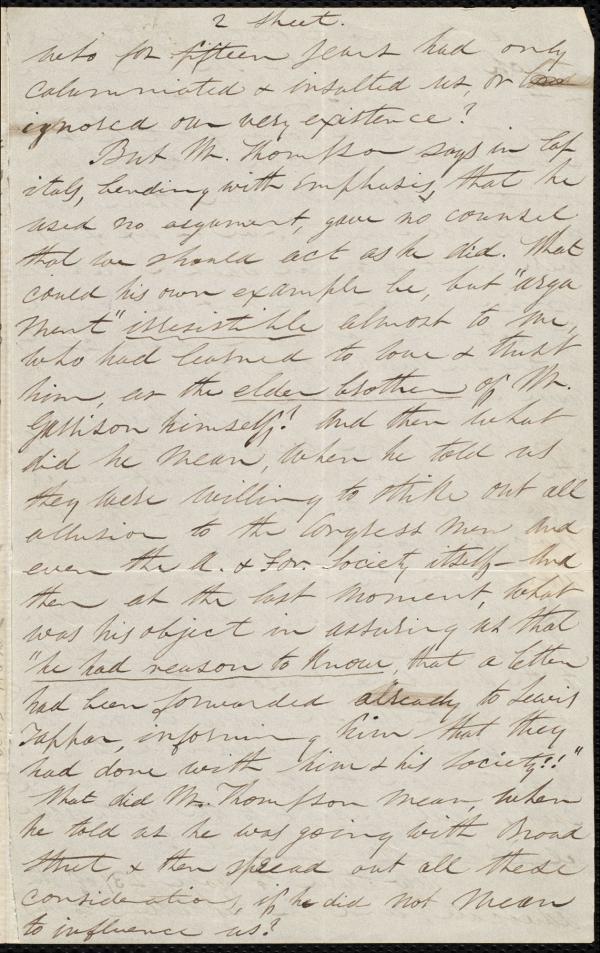 2 sheet.
who for fifteen years had only
calumniated & insulted us, or
ignored our very existence?
But Mr. Thompson says in Cap
itals, bending with emphasis, that he
used no argument, gave no counsel
that we should act as he did. What
could his own example be, but "argu
ment" irresistible almost to me,
who had learned to love & trust
him, as the elder brother of Mr.
Garrison himself? And then what
did he mean, when he told us
they were willing to strike out all
allusion to the Congress men and
even the A. & For. Society itself - And
then at the last moment, what
was his object in assuring us that
"he had reason to know, that a letter
had been forwarded already to Lewis
Tappan, informing him that they
had done with him & his Society!!"
What did Mr. Thompson mean, when
he told us he was going with Broad
Street, & then spread out all these
considerations, if he did not mean
to influence us?